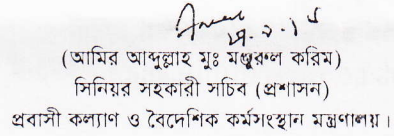 (আমির আব্দুল্লাহ মুঃ মঞ্জুরুল করিম)
সিনিয়র সহকারী সচিব (প্রশাসন)
প্রবাসী কল্যাণ ও বৈদেশিক কর্মসংস্থান মন্ত্রণালয়।